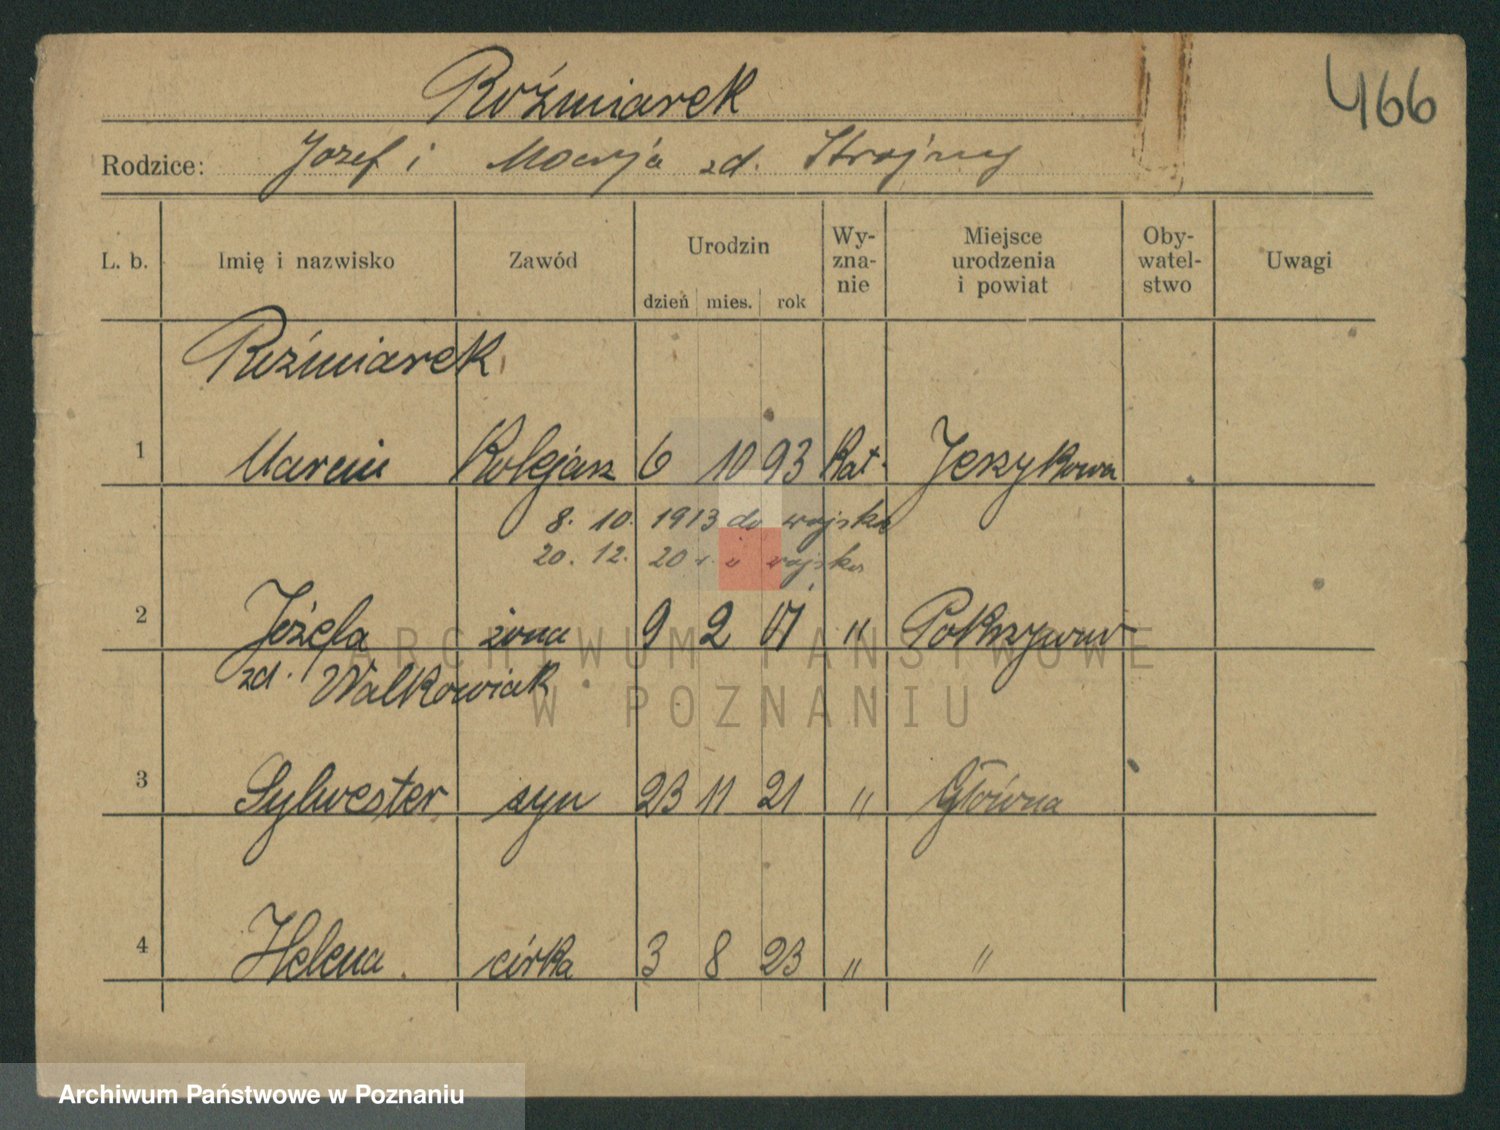 466
Roźmiarek
Rodzice: Józef i Marja zd. Strojny
L. b. Imię i nazwisko Zawód Urodzin dzień mies. rok Wyznanie Miejsce urodzenia i powiat Obywatelstwo Uwagi
Roźmiarek
1 Marcin Kolejarz 6 10 93 Kat. Jerzykowo
8. 10. 1913 do wojska
20. 12. 20 r. z wojska
2 Józefa żona 9 2 01 " Pokrzywno
zd. Walkowiak
3 Sylwester syn 23 11 21 " Główna
4 Helena. córka 3 8 23 " "
ARCHIWUM PAŃSTWOWE
W POZNANIU
Archiwum Państwowe w Poznaniu